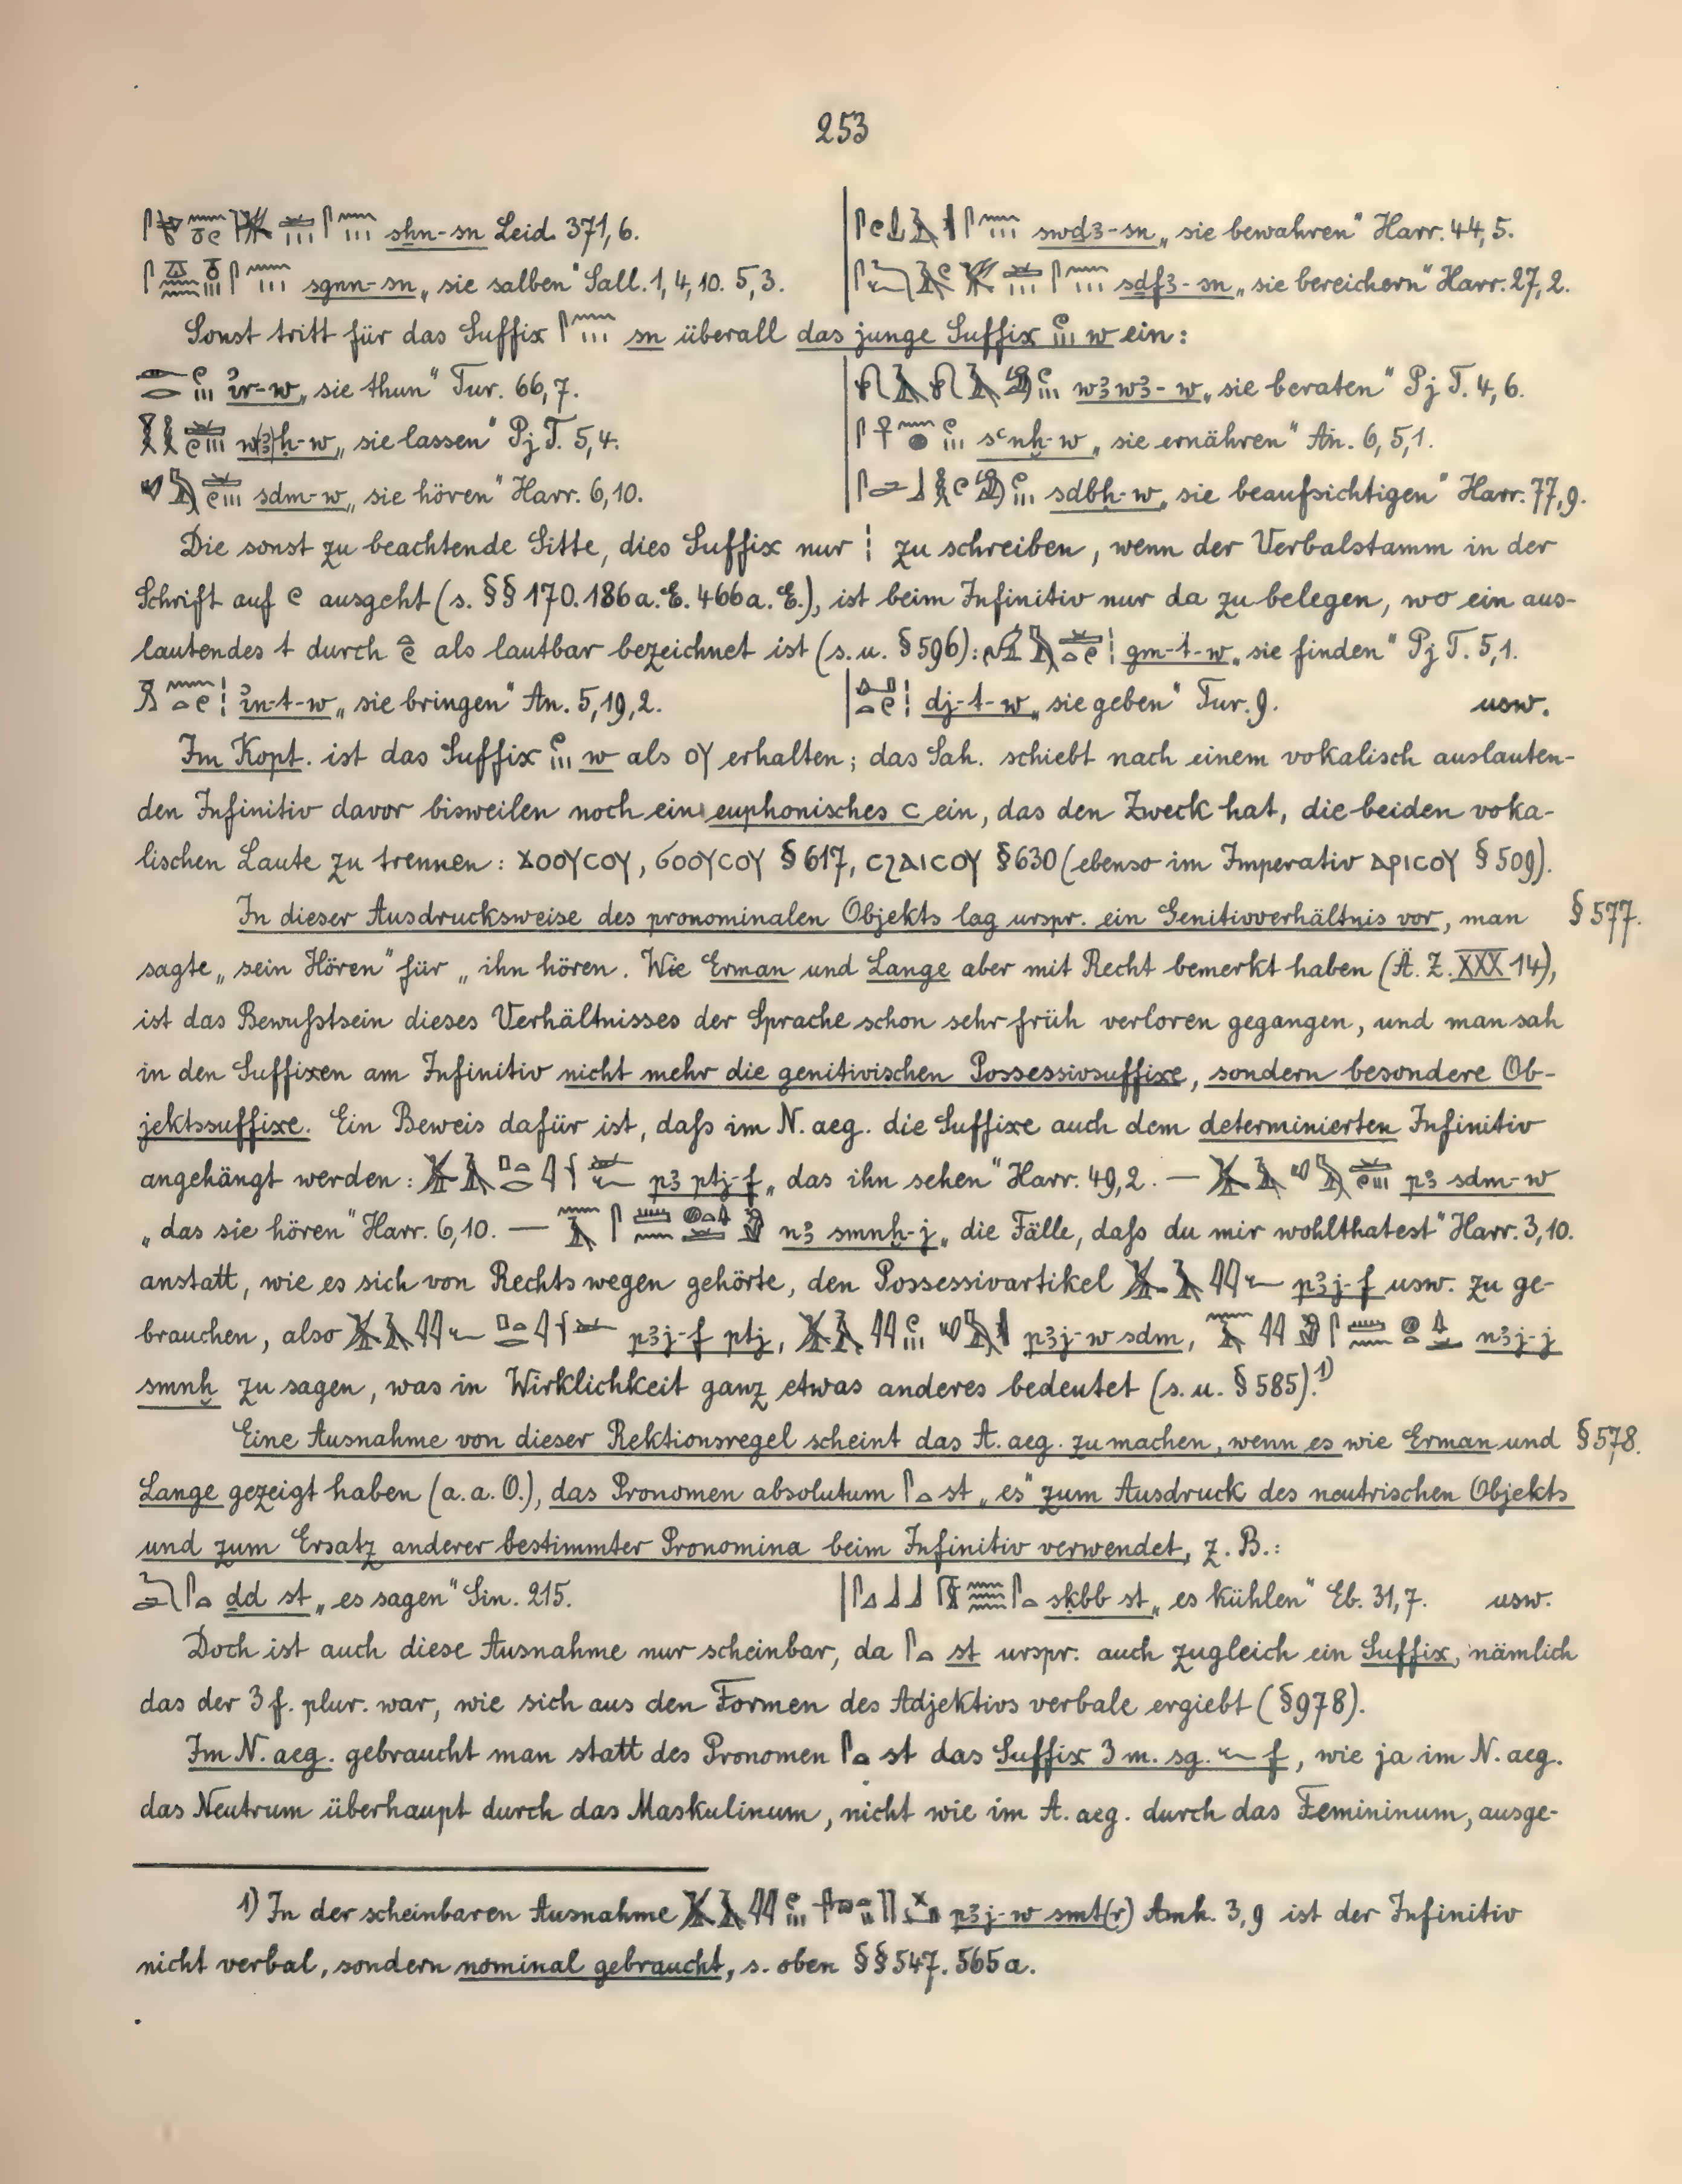 253
sḥn-sn Leid. 371,6.
swḏ3-sn „sie bewahren“ Harr. 44,5.
sgnn-sn „sie salben“ Sall. 1,4,10. 5,3.
sḏf3-sn „sie bereichern“ Harr. 27,2.
Sonst tritt für das Suffix sn überall das junge Suffix w ein:
ir-w „sie thun“ Tur. 66,7.
w3w3-w „sie beraten“ Pj T. 4,6.
w(3)ḥ-w „sie lassen“ Pj T. 5,4.
sʿnḫ-w „sie ernähren“ An. 6,5,1.
sdm-w „sie hören“ Harr. 6,10.
sdbḥ-w „sie beaufsichtigen“ Harr. 77,9.
Die sonst zu beachtende Sitte, dies Suffix nur ¦ zu schreiben, wenn der Verbalstamm in der
Schrift auf ausgeht (s. §§ 170. 186 a. E. 466 a. E.), ist beim Infinitiv nur da zu belegen, wo ein aus-
lautendes t durch als lautbar bezeichnet ist (s. u. § 596): gm-t-w „sie finden“ Pj T. 5,1.
in-t-w „sie bringen“ An. 5,19,2.
dj-t-w „sie geben“ Tur. 9. usw.
Im Kopt. ist das Suffix w als ⲟⲩ erhalten; das Sah. schiebt nach einem vokalisch auslauten-
den Infinitiv davor bisweilen noch ein euphonisches ⲥ ein, das den Zweck hat, die beiden voka-
lischen Laute zu trennen: ϫⲟⲟⲩⲥⲟⲩ, ϭⲟⲟⲩⲥⲟⲩ § 617, ⲥϩⲁⲓⲥⲟⲩ § 630 (ebenso im Imperativ ⲁⲣⲓⲥⲟⲩ § 509).
In dieser Ausdrucksweise des pronominalen Objekts lag urspr. ein Genitivverhältnis vor, man § 577.
sagte „sein Hören“ für „ihn hören. Wie Erman und Lange aber mit Recht bemerkt haben (Ä. Z. XXX 14),
ist das Bewußtsein dieses Verhältnisses der Sprache schon sehr früh verloren gegangen, und man sah
in den Suffixen am Infinitiv nicht mehr die genitivischen Possessivsuffixe, sondern besondere Ob-
jektssuffixe. Ein Beweis dafür ist, daß im N. aeg. die Suffixe auch dem determinierten Infinitiv
angehängt werden: p3 ptj-f „das ihn sehen“ Harr. 49,2. — p3 sdm-w
„das sie hören“ Harr. 6,10. — n3 smnḫ-j „die Fälle, daß du mir wohlthatest“ Harr. 3,10.
anstatt, wie es sich von Rechts wegen gehörte, den Possessivartikel p3j-f usw. zu ge-
brauchen, also p3j-f ptj, p3j-w sdm, n3j-j
smnḫ zu sagen, was in Wirklichkeit ganz etwas anderes bedeutet (s. u. § 585).¹)
Eine Ausnahme von dieser Rektionsregel scheint das A. aeg. zu machen, wenn es wie Erman und § 578.
Lange gezeigt haben (a. a. O.), das Pronomen absolutum st „es“ zum Ausdruck des neutrischen Objekts
und zum Ersatz anderer bestimmter Pronomina beim Infinitiv verwendet, z. B.:
ḏd st „es sagen“ Sin. 215.
sḳbb st „es kühlen“ Eb. 31,7. usw.
Doch ist auch diese Ausnahme nur scheinbar, da st urspr. auch zugleich ein Suffix, nämlich
das der 3 f. plur. war, wie sich aus den Formen des Adjektivs verbale ergiebt (§ 978).
Im N. aeg. gebraucht man statt des Pronomen st das Suffix 3 m. sg. f, wie ja im N. aeg.
das Neutrum überhaupt durch das Maskulinum, nicht wie im A. aeg. durch das Femininum, ausge-
1) In der scheinbaren Ausnahme p3j-w smt(r) Amh. 3,9 ist der Infinitiv
nicht verbal, sondern nominal gebraucht, s. oben §§ 547. 565a.